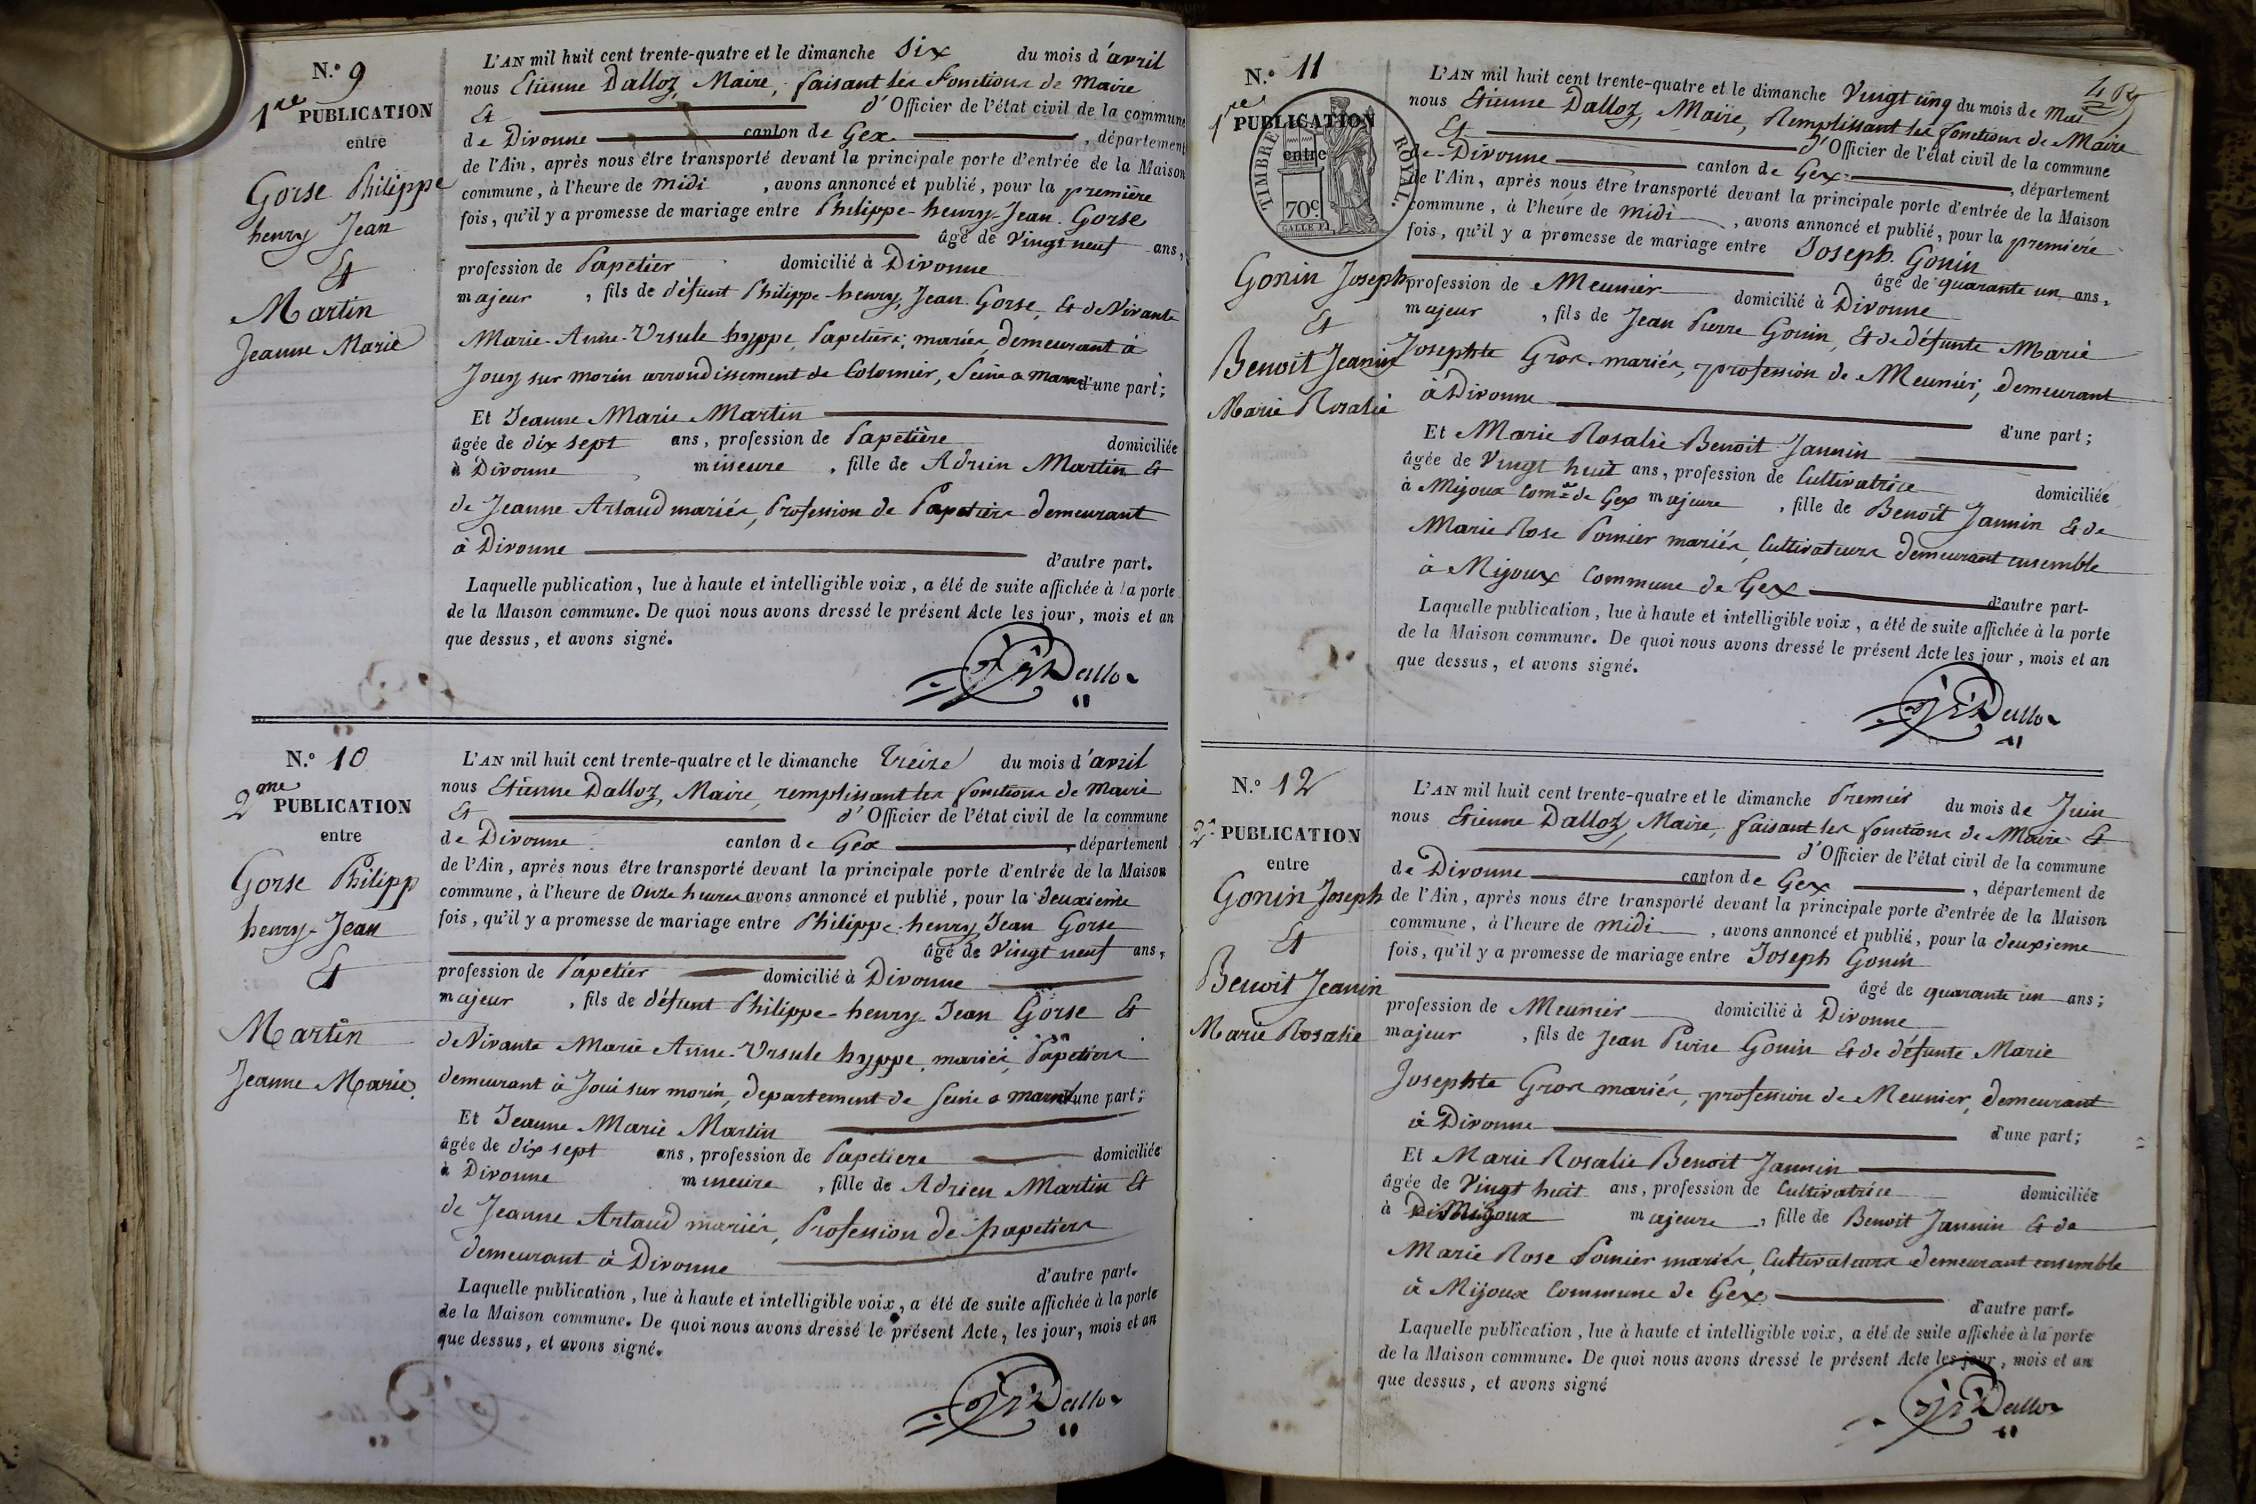 N.° 9
1re PUBLICATION
entre
Gorse Philippe
henry Jean
Et
Martin
Jeanne Marie
L'AN mil huit cent trente-quatre et le dimanche Six du mois d'avril
nous Etienne Dalloz, Maire, faisant les Fonctions de Maire
Et d'Officier de l'état civil de la commune
de Divonne canton de Gex, département
de l'Ain, après nous être transporté devant la principale porte d'entrée de la Maison
commune, à l'heure de midi, avons annoncé et publié, pour la première
fois, qu'il y a promesse de mariage entre Philippe-henry-Jean Gorse
âgé de Vingt neuf ans,
profession de Papetier domicilié à Divonne
majeur, fils de défunt Philippe henry, Jean Gorse, Et de Vivante
Marie-Anne-Ursule hyppe, Papetiers, mariés, demeurant à
Jouy sur morin arrondissement de Colomier, Seine a marne d'une part;
Et Jeanne Marie Martin
âgée de dix sept ans, profession de Papetière domiciliée
à Divonne mineure, fille de Adrien Martin Et
de Jeanne Artaud mariés, Profession de Papetiers demeurant
à Divonne
d'autre part.
Laquelle publication, lue à haute et intelligible voix, a été de suite affichée à la porte
de la Maison commune. De quoi nous avons dressé le présent Acte les jour, mois et an
que dessus, et avons signé.
Dalloz
N.° 10
2me PUBLICATION
entre
Gorse Philipp
henry-Jean
Et
Martin
Jeanne Marie.
L'AN mil huit cent trente-quatre et le dimanche Treize du mois d'avril
nous Etienne Dalloz, Maire, remplissant les fonctions de Maire
Et d'Officier de l'état civil de la commune
de Divonne canton de Gex, département
de l'Ain, après nous être transporté devant la principale porte d'entrée de la Maison
commune, à l'heure de Onze heures avons annoncé et publié, pour la deuxieme
fois, qu'il y a promesse de mariage entre Philippe-henry Jean Gorse
âgé de Vingt neuf ans,
profession de Papetier domicilié à Divonne
majeur, fils de défunt Philippe-henry-Jean Gorse Et
de Vivante Marie Anne-Ursule hyppe, mariés, Papetiers
demeurant à Joui sur morin, departement de Seine a marne d'une part;
Et Jeanne Marie Martin
âgée de dix sept ans, profession de Papetiere domiciliée
à Divonne mineure, fille de Adrien Martin Et
de Jeanne Artaud mariés, Profession de papetiers
demeurant à Divonne
d'autre part.
Laquelle publication, lue à haute et intelligible voix, a été de suite affichée à la porte
de la Maison commune. De quoi nous avons dressé le présent Acte, les jour, mois et an
que dessus, et avons signé.
Dalloz
N.° 11
1re PUBLICATION
entre
TIMBRE ROYAL.
70c.
Gonin Joseph
Et
Benoit Jeanin
Marie Rosalie
L'AN mil huit cent trente-quatre et le dimanche Vingt cinq du mois de Mai
nous Etienne Dalloz, Maire, Remplissant les fonctions de Maire
Et d'Officier de l'état civil de la commune
de Divonne canton de Gex, département
de l'Ain, après nous être transporté devant la principale porte d'entrée de la Maison
commune, à l'heure de midi, avons annoncé et publié, pour la premiere
fois, qu'il y a promesse de mariage entre Joseph Gonin
âgé de quarante un ans,
profession de Meunier domicilié à Divonne
majeur, fils de Jean Pierre Gonin, Et de défunte Marie
Josephte Gros mariés, profession de Meunier, demeurant
à Divonne
d'une part;
Et Marie Rosalie Benoit Jannin
âgée de Vingt huit ans, profession de Cultivatrice domiciliée
à Mijoux Com.ne de Gex majeure, fille de Benoit Jannin Et de
Marie Rose Poinier mariés, Cultivateurs demeurant ensemble
à Mijoux Commune de Gex
d'autre part.
Laquelle publication, lue à haute et intelligible voix, a été de suite affichée à la porte
de la Maison commune. De quoi nous avons dressé le présent Acte les jour, mois et an
que dessus, et avons signé.
Dalloz
N.° 12
2e PUBLICATION
entre
Gonin Joseph
Et
Benoit Jeanin
Marie Rosalie
L'AN mil huit cent trente-quatre et le dimanche Premier du mois de Juin
nous Etienne Dalloz, Maire, faisant les fonctions de Maire Et
d'Officier de l'état civil de la commune
de Divonne canton de Gex, département de
de l'Ain, après nous être transporté devant la principale porte d'entrée de la Maison
commune, à l'heure de midi, avons annoncé et publié, pour la deuxieme
fois, qu'il y a promesse de mariage entre Joseph Gonin
âgé de quarante un ans;
profession de Meunier domicilié à Divonne
majeur, fils de Jean Pierre Gonin Et de défunte Marie
Josephte Gros mariés, profession de Meunier, demeurant
à Divonne
d'une part;
Et Marie Rosalie Benoit Jannin
âgée de Vingt huit ans, profession de Cultivatrice domiciliée
à Mijoux majeure, fille de Benoit Jannin Et de
Marie Rose Poinier mariés, Cultivateurs demeurant ensemble
à Mijoux Commune de Gex
d'autre part.
Laquelle publication, lue à haute et intelligible voix, a été de suite affichée à la porte
de la Maison commune. De quoi nous avons dressé le présent Acte les jour, mois et an
que dessus, et avons signé
Dalloz